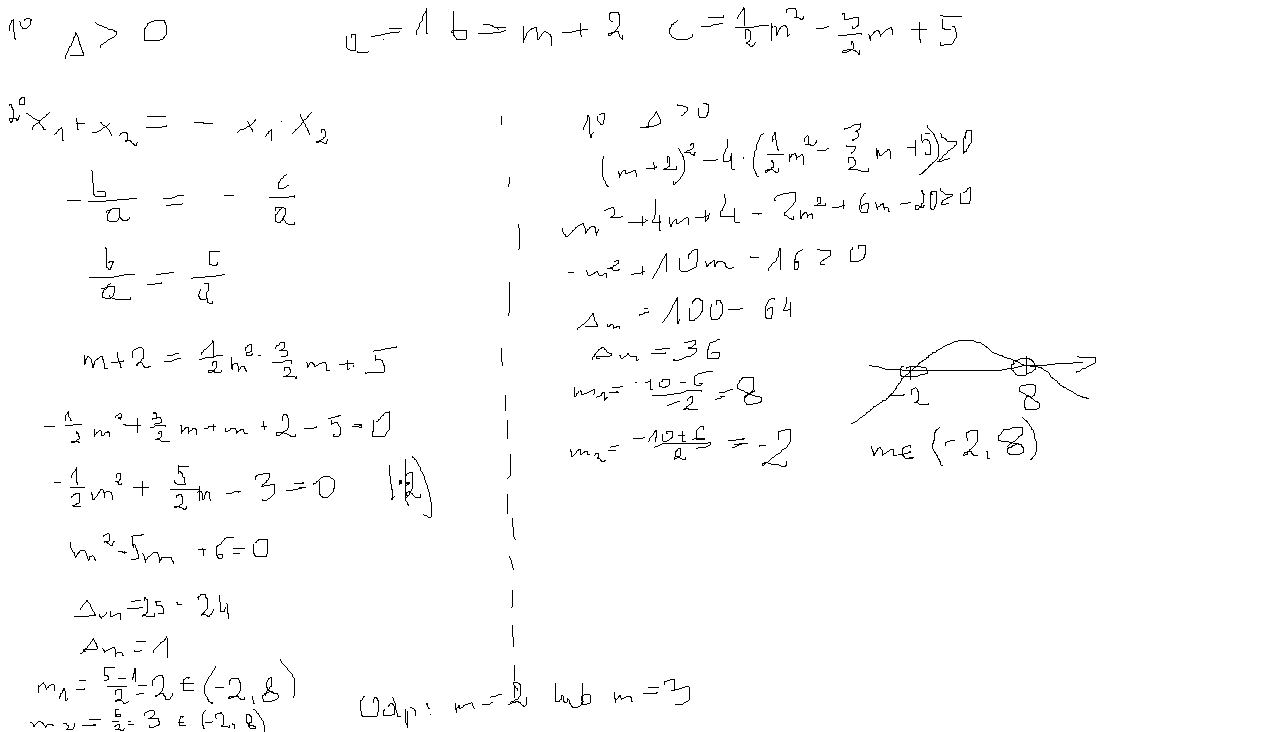 1° Δ > 0
a = 1 b = m + 2 c = 1/2 m² - 3/2 m + 5
2° x₁ + x₂ = - x₁ · x₂
- b/a = - c/a
b/a = c/a
m + 2 = 1/2 m² - 3/2 m + 5
- 1/2 m² + 3/2 m + m + 2 - 5 = 0
- 1/2 m² + 5/2 m - 3 = 0 |·2)
m² - 5m + 6 = 0
Δm = 25 - 24
Δm = 1
m₁ = 5-1/2 = 2 ∈ (-2, 8)
m₂ = 6/2 = 3 ∈ (-2, 8)
1° Δ > 0
(m + 2)² - 4 · (1/2 m² - 3/2 m + 5) > 0
m² + 4m + 4 - 2m² + 6m - 20 > 0
- m² + 10m - 16 > 0
Δm = 100 - 64
Δm = 36
m₁ = -10-6/-2 = 8
m₂ = -10+6/2 = -2
-2 8
m ∈ (-2, 8)
Odp: m = 2 lub m = 3